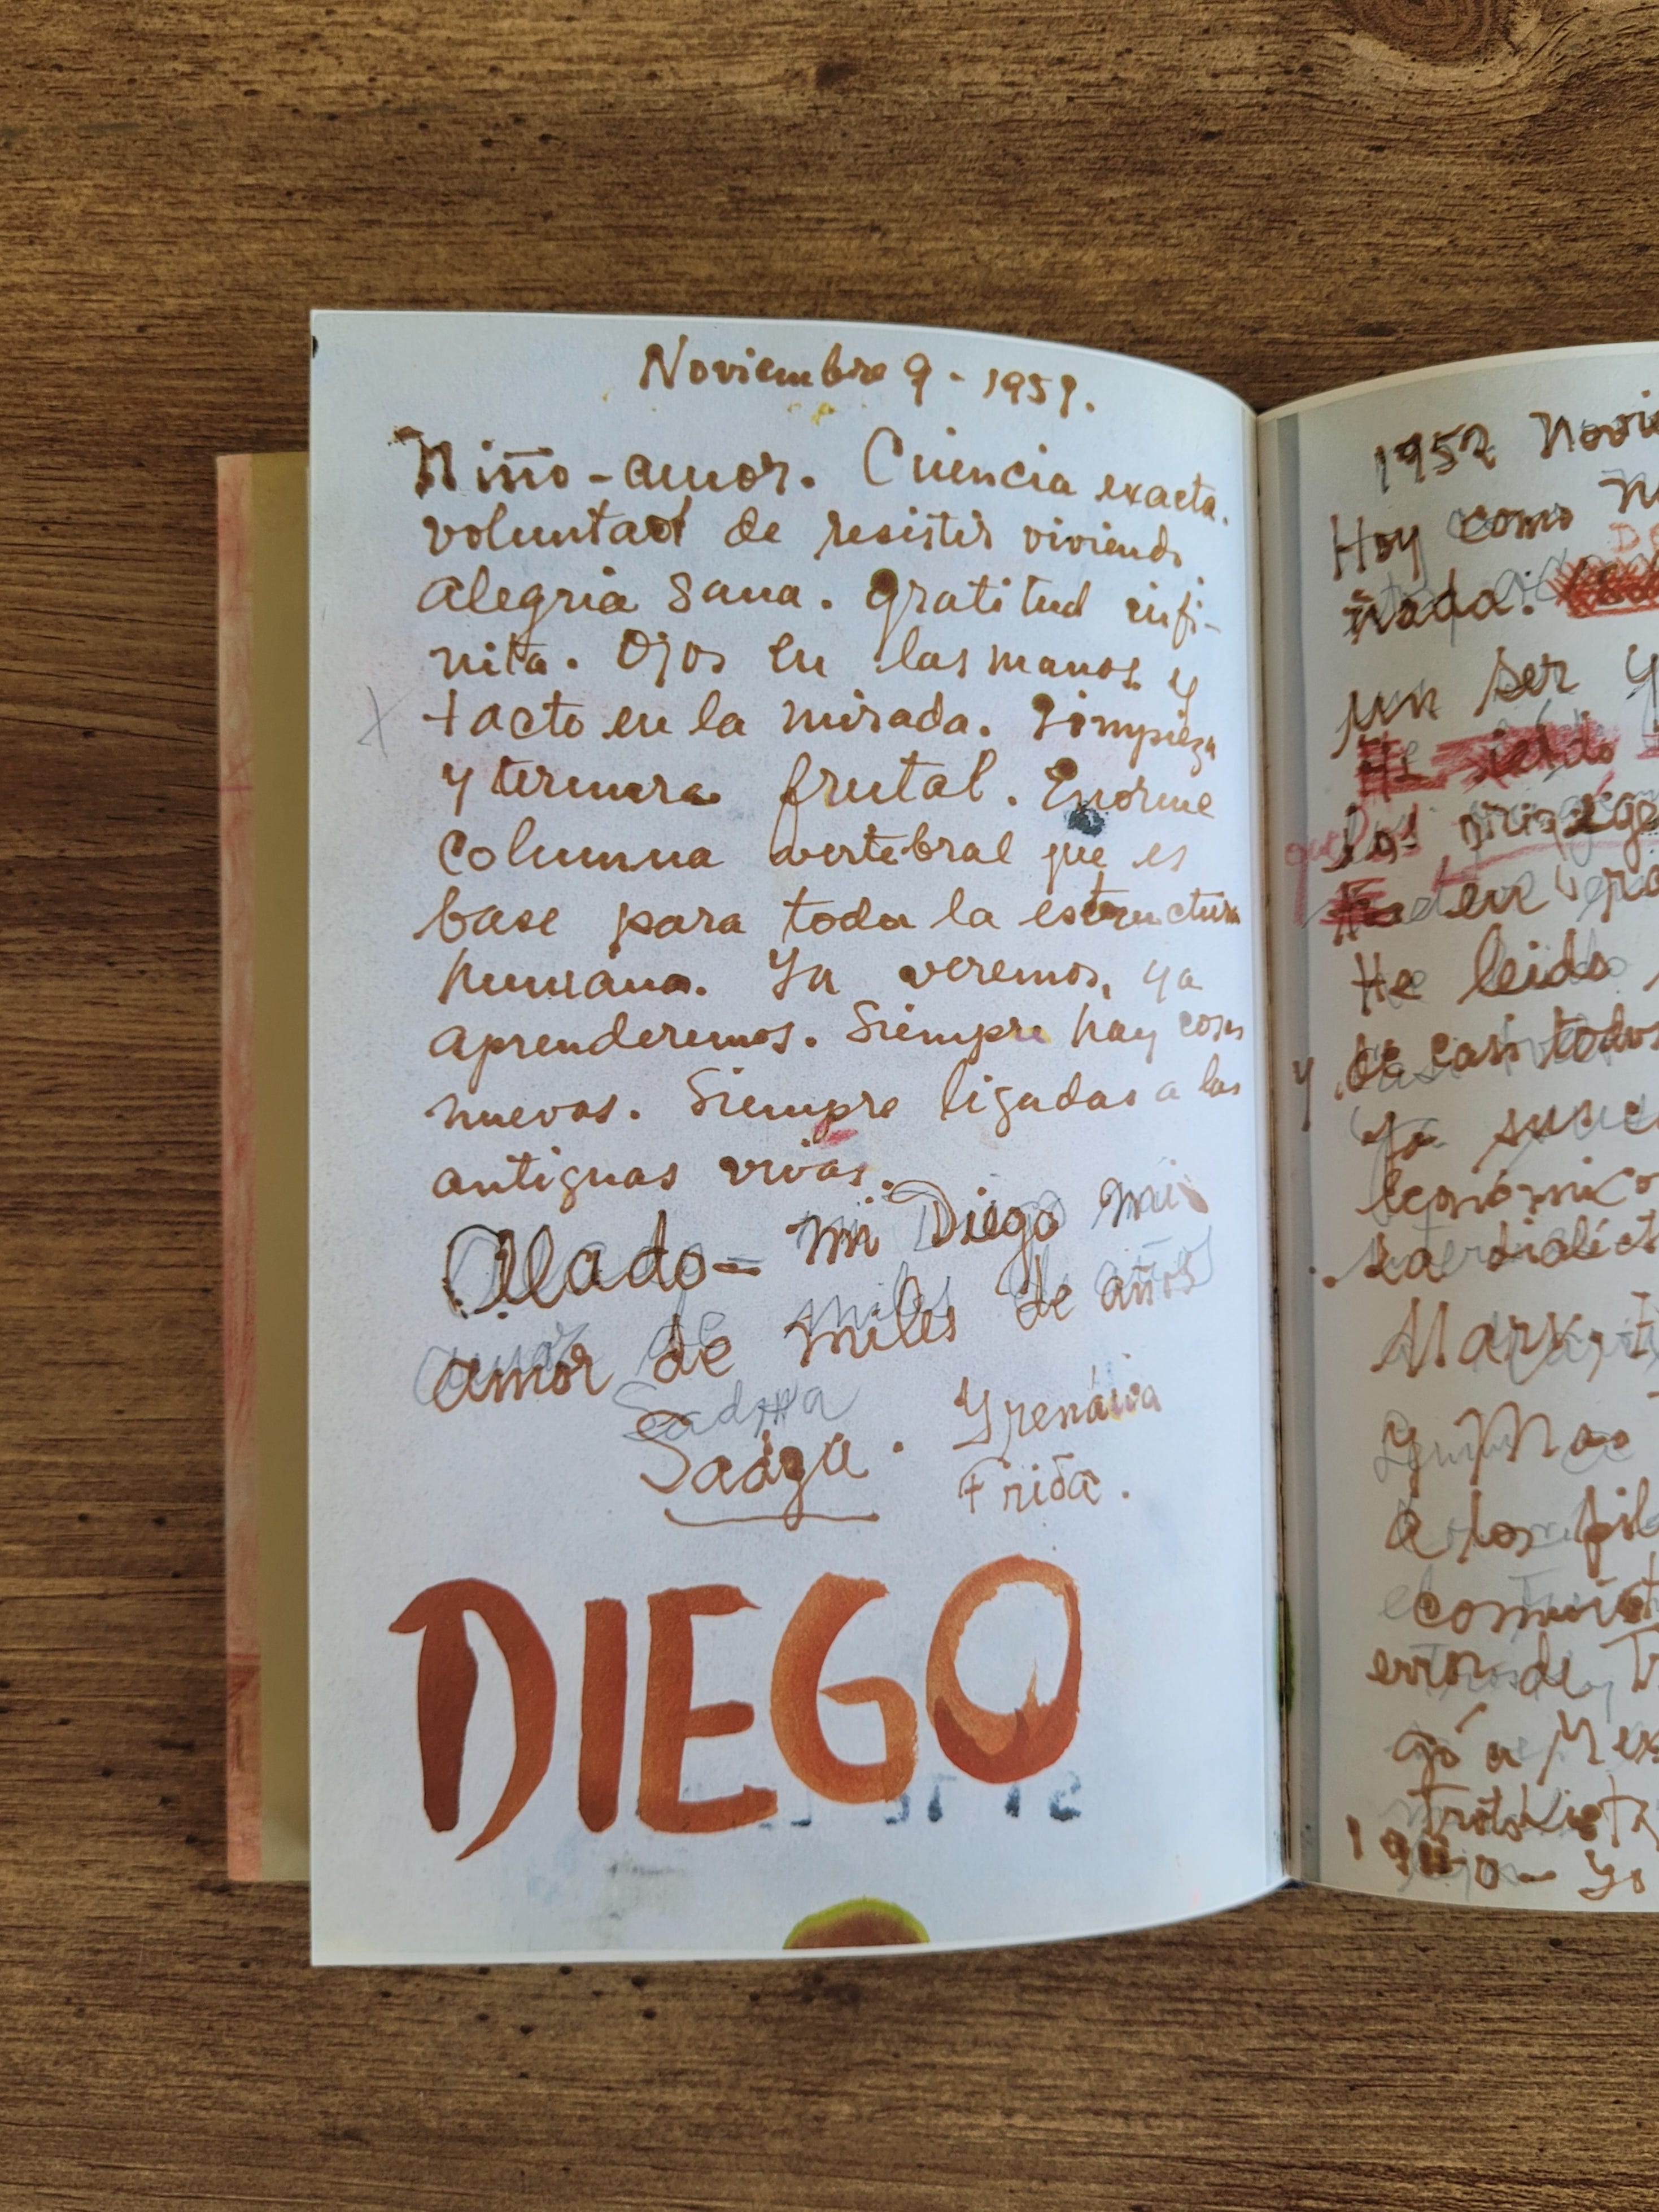 Noviembre 9 - 1951.
Niño-amor. Ciencia exacta.
voluntad de resistir viviendo
alegria sana. gratitud infi-
nita. Ojos en las manos y
tacto en la mirada. Limpieza
y ternura frutal. Enorme
columna vertebral que es
base para toda la estructura
humana. Ya veremos, ya
aprenderemos. Siempre hay cosas
nuevas. Siempre ligadas a las
antiguas vivas.
Alado - mi Diego mi
amor de miles de años
Sadga. Yrenáica
Frida.
DIEGO
1952 Novie
Hoy como n
ñada:
un ser y
los
He leido
y de casi todos
Ya
económico
La dialéct
Marx, E
y Mao
a los fil
comunist
error de Tr
gó a Mex
trotskista
1940 - Yo